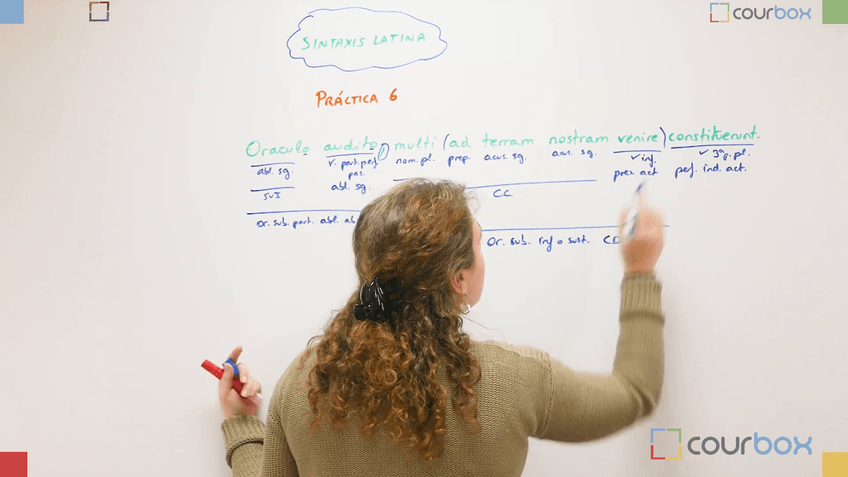 courbox
SINTAXIS LATINA
PRÁCTICA 6
Oraculo audito, multi (ad terram nostram venire) constituerunt.
abl. sg. v. part. perf. nom. pl. prep. acus. sg. acus. sg. v inf. v 3ª p. pl.
pas. pres. act perf. ind. act.
abl. sg.
SUJ CC
Or. sub. part. abl. ab
Or. sub. inf o sust. CD
courbox